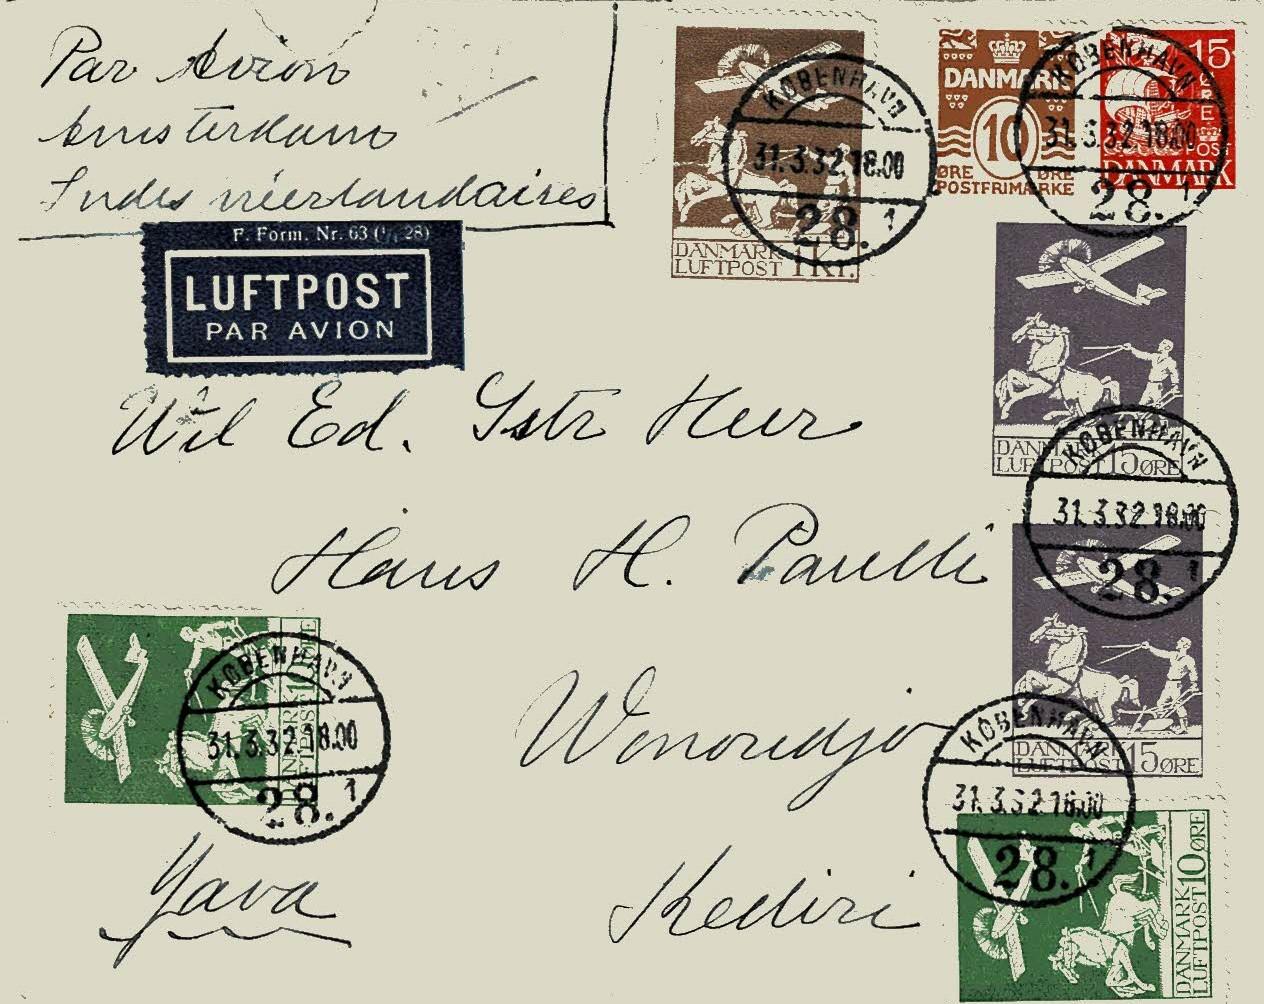 Par Avion
Amsterdam
Indes néerlandaises
F. Form. Nr. 63 (¹/₁ 28)
LUFTPOST
PAR AVION
DANMARK
LUFTPOST 1 Kr.
KØBENHAVN
31.3.32.18.00
28. 1
DANMARK
10
ØRE ØRE
POSTFRIMÆRKE
15
ØRE
POST
DANMARK
KØBENHAVN
31.3.32.18.00
28. 1
DANMARK
LUFTPOST 15 ØRE
KØBENHAVN
31.3.32.18.00
28. 1
Wil Ed. Heer
Hans H. Paulli
DANMARK
LUFTPOST 15 ØRE
DANMARK
LUFTPOST 10 ØRE
KØBENHAVN
31.3.32.18.00
28. 1
Wonoredjo
KØBENHAVN
31.3.32.18.00
28. 1
Java
Kediri
DANMARK
LUFTPOST 10 ØRE